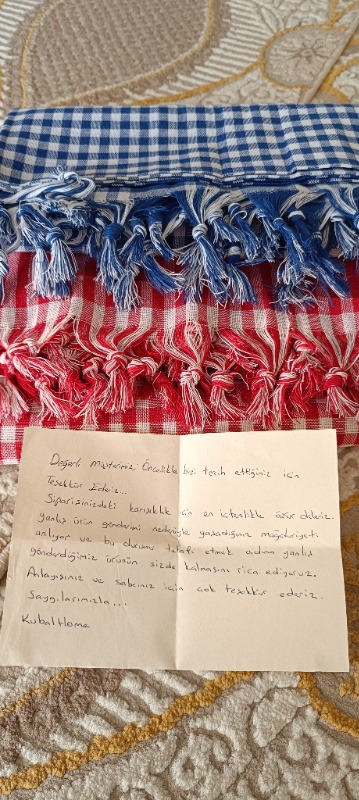 Değerli Müşterimiz; Öncelikle bizi tercih ettiğiniz için
Teşekkür Ederiz...
Siparişinizdeki karışıklık için en içtenlikle özür dileriz.
yanlış ürün gönderimi nedeniyle yaşadığınız mağduriyeti
anlıyor ve bu durumu telafi etmek adına yanlış
gönderdiğimiz ürünün sizde kalmasını rica ediyoruz.
Anlayışınız ve sabrınız için çok teşekkür ederiz.
Saygılarımızla...
Kubal Home